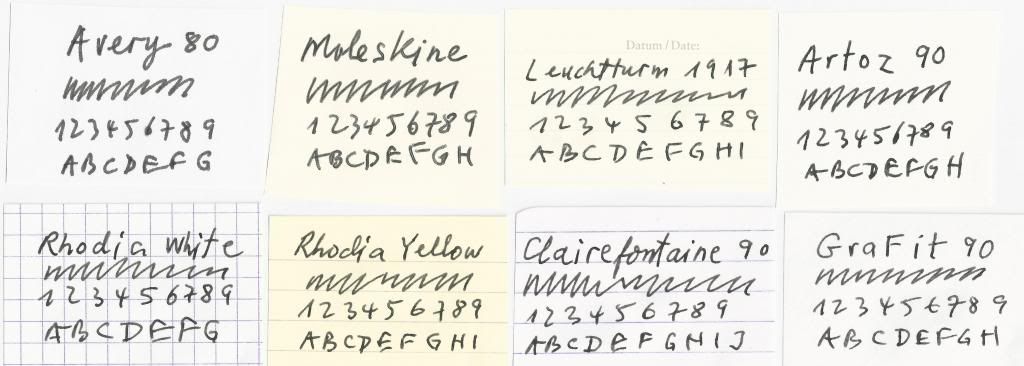 Avery 80
123456789
ABCDEFG
Moleskine
123456789
ABCDEFGH
Datum / Date:
Leuchtturm 1917
123456789
ABCDEFGHI
Artoz 90
123456789
ABCDEFGH
Rhodia White
123456789
ABCDEFG
Rhodia Yellow
123456789
ABCDEFGHI
Clairefontaine 90
123456789
ABCDEFGHIJ
GraFit 90
123456789
ABCDEFGH